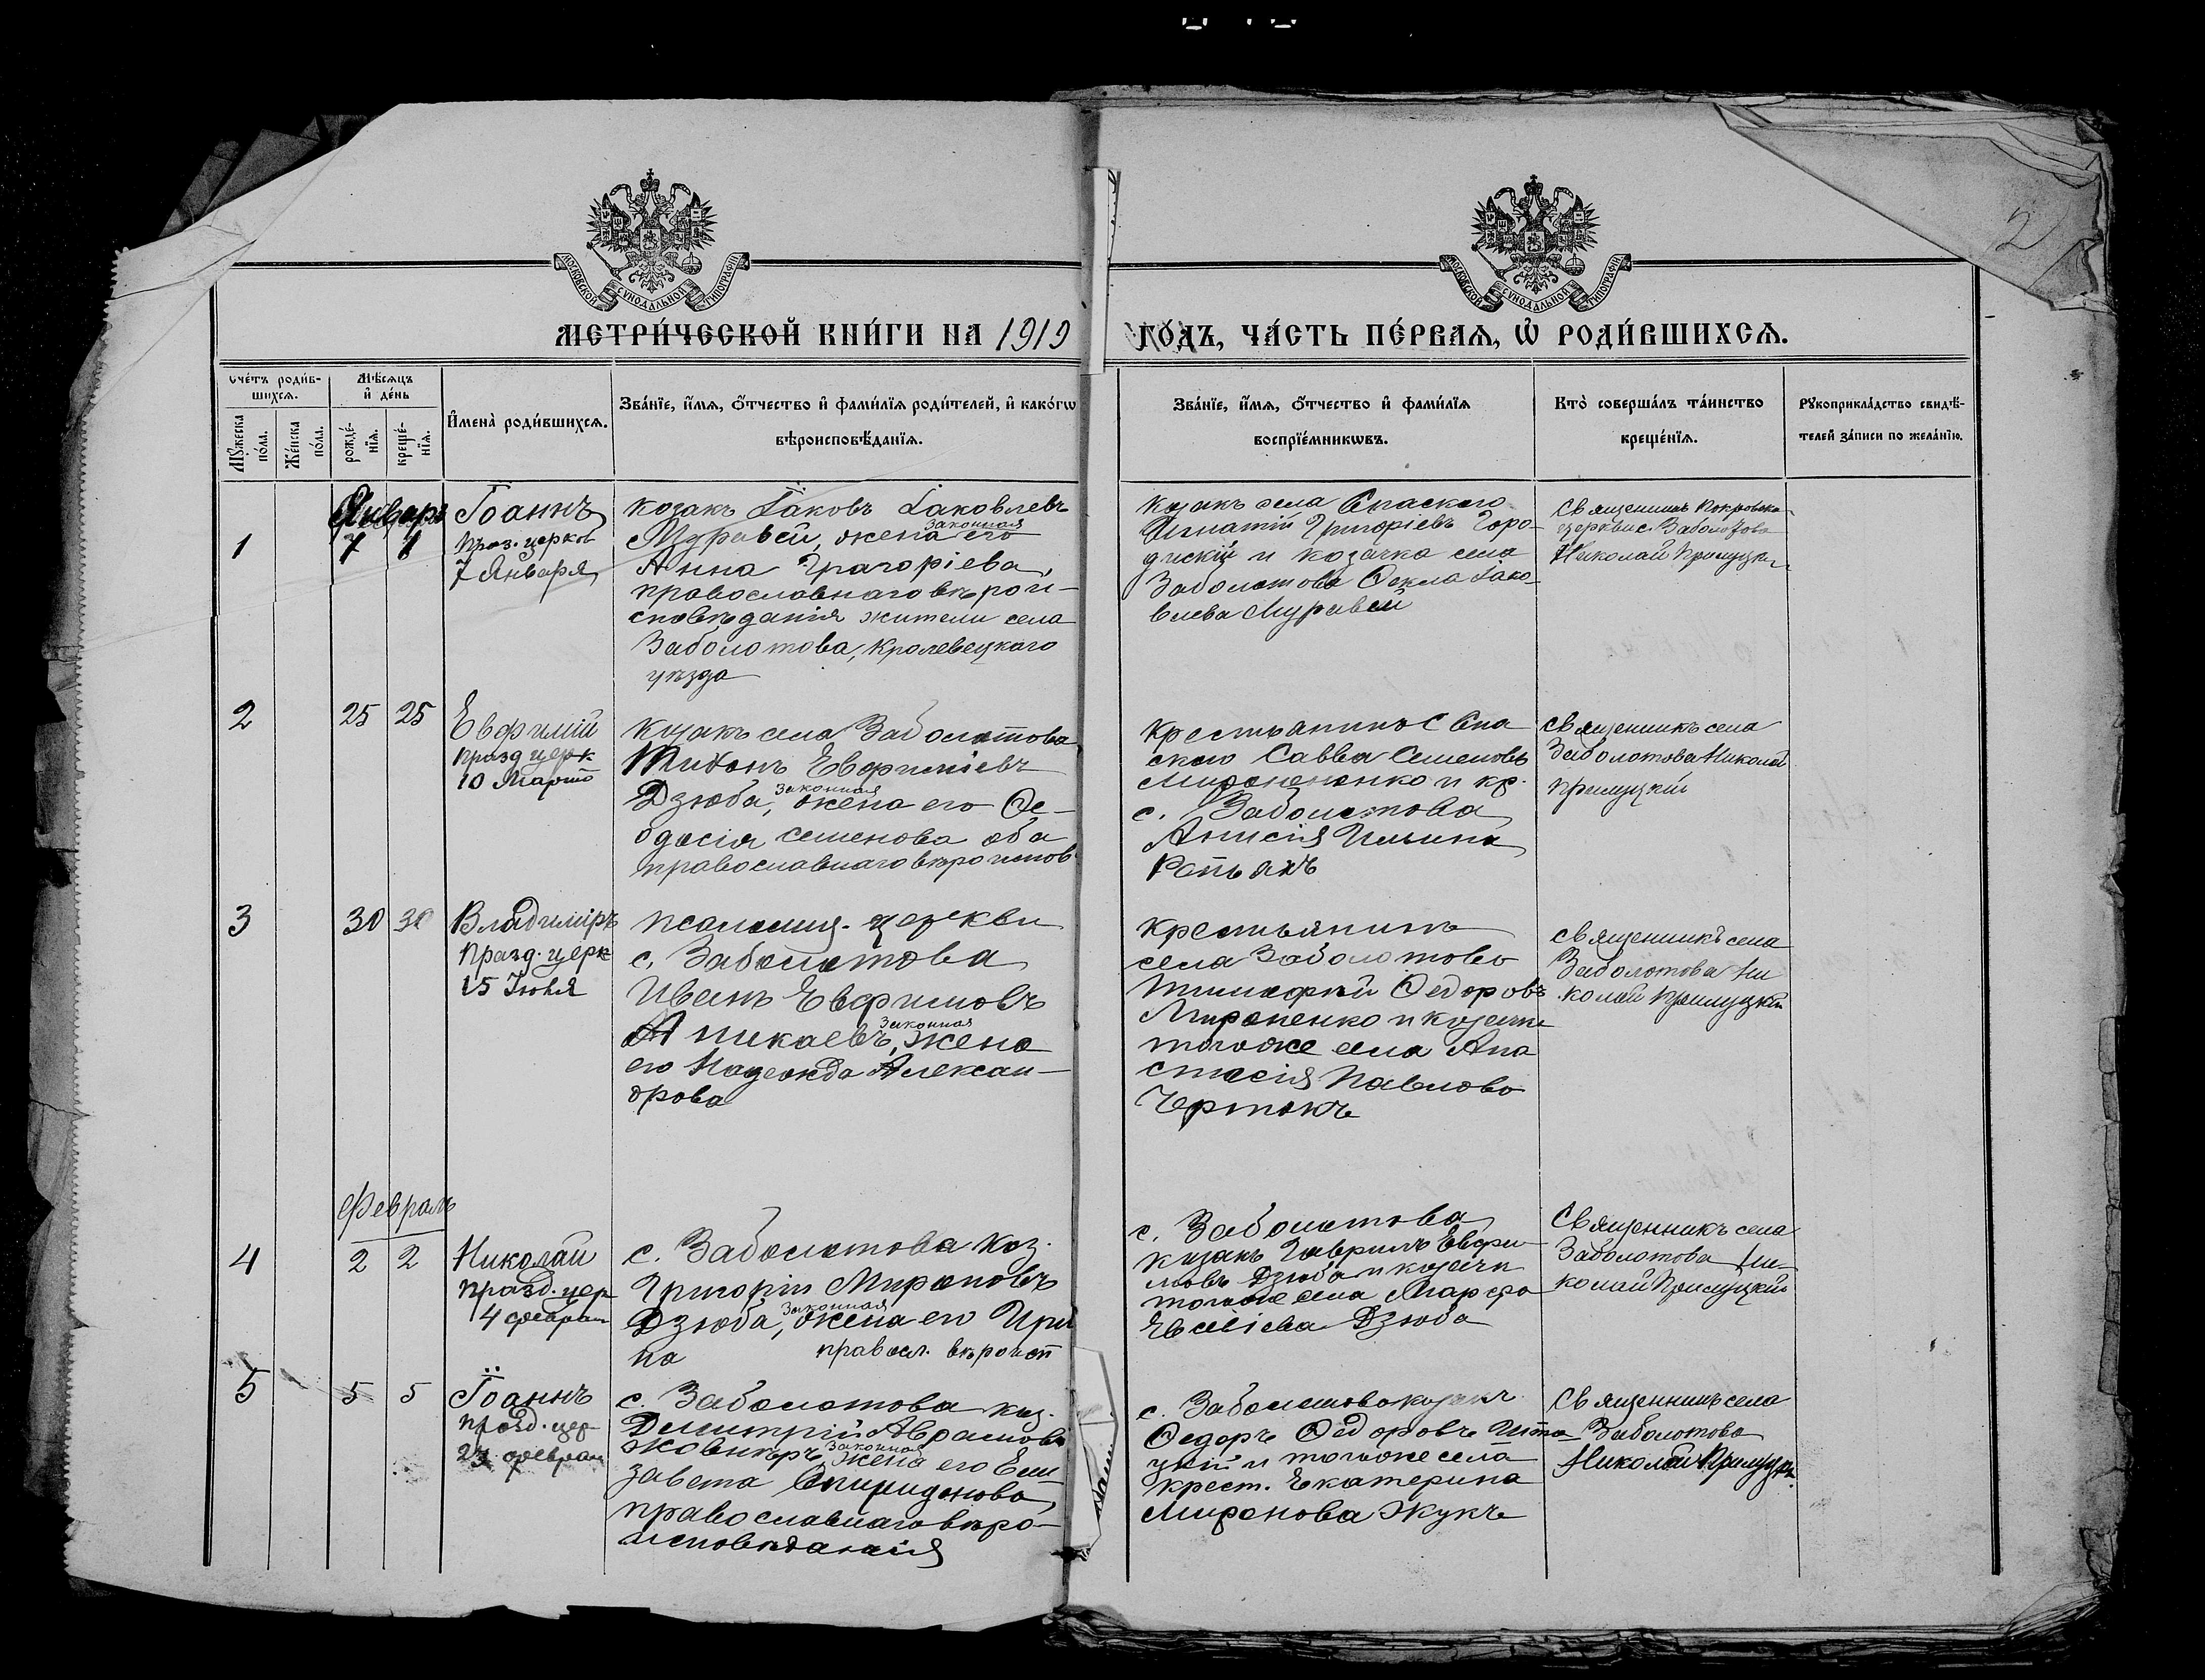 2
МОСКОВСКОЙ СѴНОДАЛЬНОЙ ТИПОГРАФІИ
МОСКОВСКОЙ СѴНОДАЛЬНОЙ ТИПОГРАФІИ
МЕТРИ́ЧЕСКОЙ КНИ́ГИ НА 1919
ГОДЪ, ЧА́СТЬ ПЕ́РВАѦ, Ѡ РОДИ́ВШИХСѦ.
Сче́тъ роди́в-
шихсѧ.
Мѣ́сѧцъ
и҆ де́нь
Мꙋ́жеска
по́ла.
Же́нска
по́ла.
рожде́-
нїѧ.
креще́-
нїѧ.
И҆мена̀ роди́вшихсѧ.
Зва́нїе, и҆́мѧ, ѻ҆́тчество и҆ фами́лїѧ роди́телей, и҆ како́гѡ
вѣроисповѣ́данїѧ.
Зва́нїе, и҆́мѧ, ѻ҆́тчество и҆ фами́лїѧ
воспрїе́мникѡвъ.
Кто̀ соверша́лъ та́инство
креще́нїѧ.
Рꙋкоприкла́дство свидѣ́-
телей за́писи по жела́нїю.
Январь
1
7
8
Іоаннъ
праз. церков
7 Января
козакъ Іаковъ Іаковлевъ
законная
Муравей, жена его
Анна Григоріева,
православнаго вѣрои-
сповѣданія жители села
Заболотова, Кролевецкаго
уѣзда
Козакъ села Спаского
Игнатій Григоріевъ Горо-
дискій и козачка села
Заболотова Ѳекла Іако-
влева Муравей
Священникъ Покровска
церкви с. Заболотова
Николай Прилуцкій
2
25
25
Евфимій
празд церк
10 Марта
Козакъ села Заболотова
Тихонъ Евфиміевъ
законная
Дзюба, жена его Ѳе-
одосія Семенова оба
православнаго вѣроиспов.
Крестьянинъ с Спа
ского Савва Семеновъ
и кр.
с. Заболотова
Анисія Ильина
священникъ села
Заболотова Николай
Прилуцкій
3
30
30
Владиміръ
Празд. церк
15 Іюля
псаломщ. церкви
с. Заболотова
Иванъ Евфимовъ
законная
Аникаевъ, жена
его Надежда Алексан-
дрова
Крестьянинъ
села Заболотова
Тимофей Ѳедоровъ
Мироненко и козачка
тогоже села Ана
стасія Павлова
Чертокъ
священникъ села
Заболотова Ни
колай Прилуцкій
Февраль
4
2
2
Николай
празд. цер
4 феврал
с. Заболотова коз.
Григорій Мироновъ
законная
Дзюба, жена его Ири
на правосл. вѣроисп
с. Заболотова
козакъ Гаврилъ Евфи-
мовъ Дзюба и козачк
тогоже села Марфа
Евсевіева Дзюба
Священникъ села
Заболотова Ни-
колай Прилуцкій
5
5
5
Іоаннъ
празд. цер
23 феврал
с. Заболотова коз.
Димитрій Аврамовъ
законная
жена его Ели
завета Спиридонова
православнаго вѣро-
исповѣданія
с. Заболотова козакъ
Ѳедоръ Ѳедоровъ
и тогоже села
крест. Екатерина
Миронова Жукъ
Священникъ села
Заболотова
Николай Прилуцк.